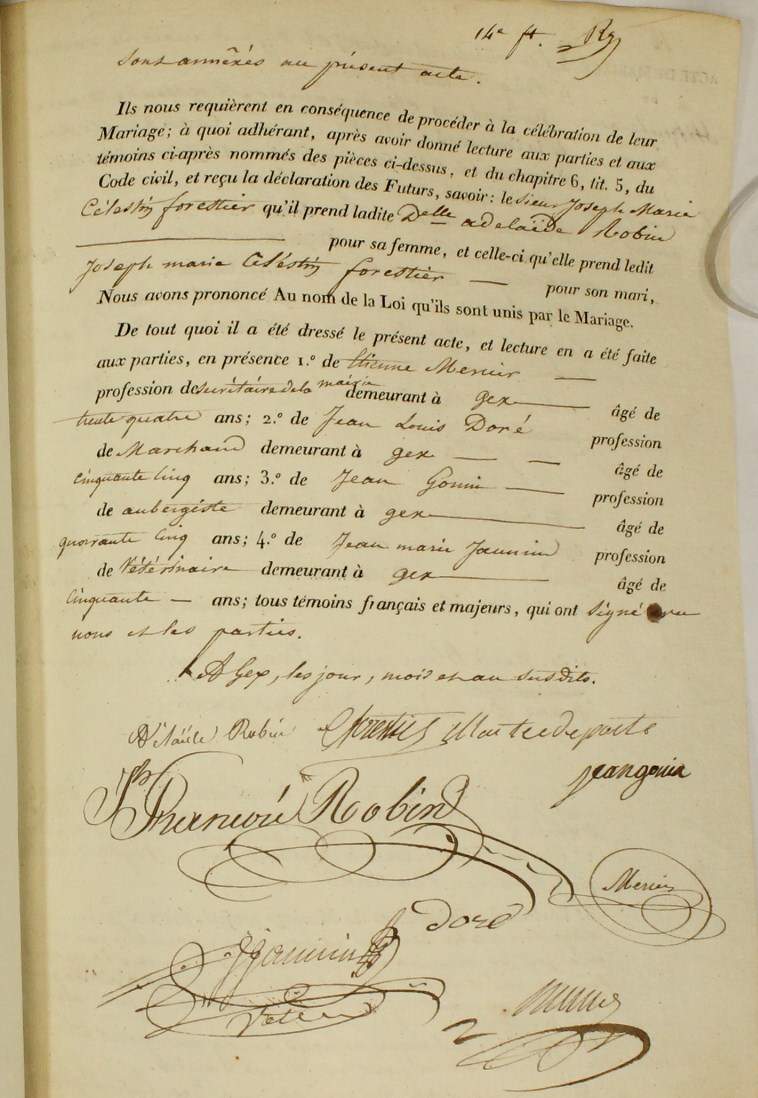 14e ft.
sont annéxés au présent acte.
Ils nous requièrent en conséquence de procéder à la célébration de leur
Mariage; à quoi adhérant, après avoir donné lecture aux parties et aux
témoins ci-après nommés des pièces ci-dessus, et du chapitre 6, tit. 5, du
Code civil, et reçu la déclaration des Futurs, savoir: le Sieur Joseph Marie
Célestin forestier qu'il prend ladite Delle adelaïde Robin
pour sa femme, et celle-ci qu'elle prend ledit
Joseph marie Célestin forestier pour son mari,
Nous avons prononcé Au nom de la Loi qu'ils sont unis par le Mariage.
De tout quoi il a été dressé le présent acte, et lecture en a été faite
aux parties, en présence 1.º de Etienne Mercier
profession de secrétaire de la mairie demeurant à gex âgé de
trente quatre ans; 2.º de Jean Louis Doré profession
de Marchand demeurant à gex âgé de
cinquante cinq ans; 3.º de Jean Gonin profession
de aubergiste demeurant à gex âgé de
quarante cinq ans; 4.º de Jean marie Jannin profession
de Vétérinaire demeurant à gex âgé de
cinquante ans; tous témoins français et majeurs, qui ont signé avec
nous et les parties.
A Gex, les jour, mois et an susdits.
Robin Forestier Maitre de poste
jean gonin
Robin
Mercier
doré
Jannin